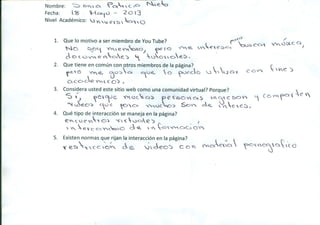 Nombre: Sonia Patricia Nieto
Fecha: 18 Mayo - 2013
Nivel Académico: Universitario
1. Que lo motivo a ser miembro de You Tube?
NO soy miembro, pero me interesa buscar música,
documentales y tutoriales.
2. Que tiene en común con otros miembros de la página?
pero me gusta que lo puedo utilizar con fines
academico.
3. Considera usted este sitio como una comunidad virtual? Porque?
Si, porque muchas personas ingresan y comparten
videos que para muchos son de interes.
4. Qué tipo de interacción se maneja en la página?
encuentros virtuales,
intercambio de informacion
5. Existen normas que rijan la interacción en la página?
restricción de videos con material pornografico